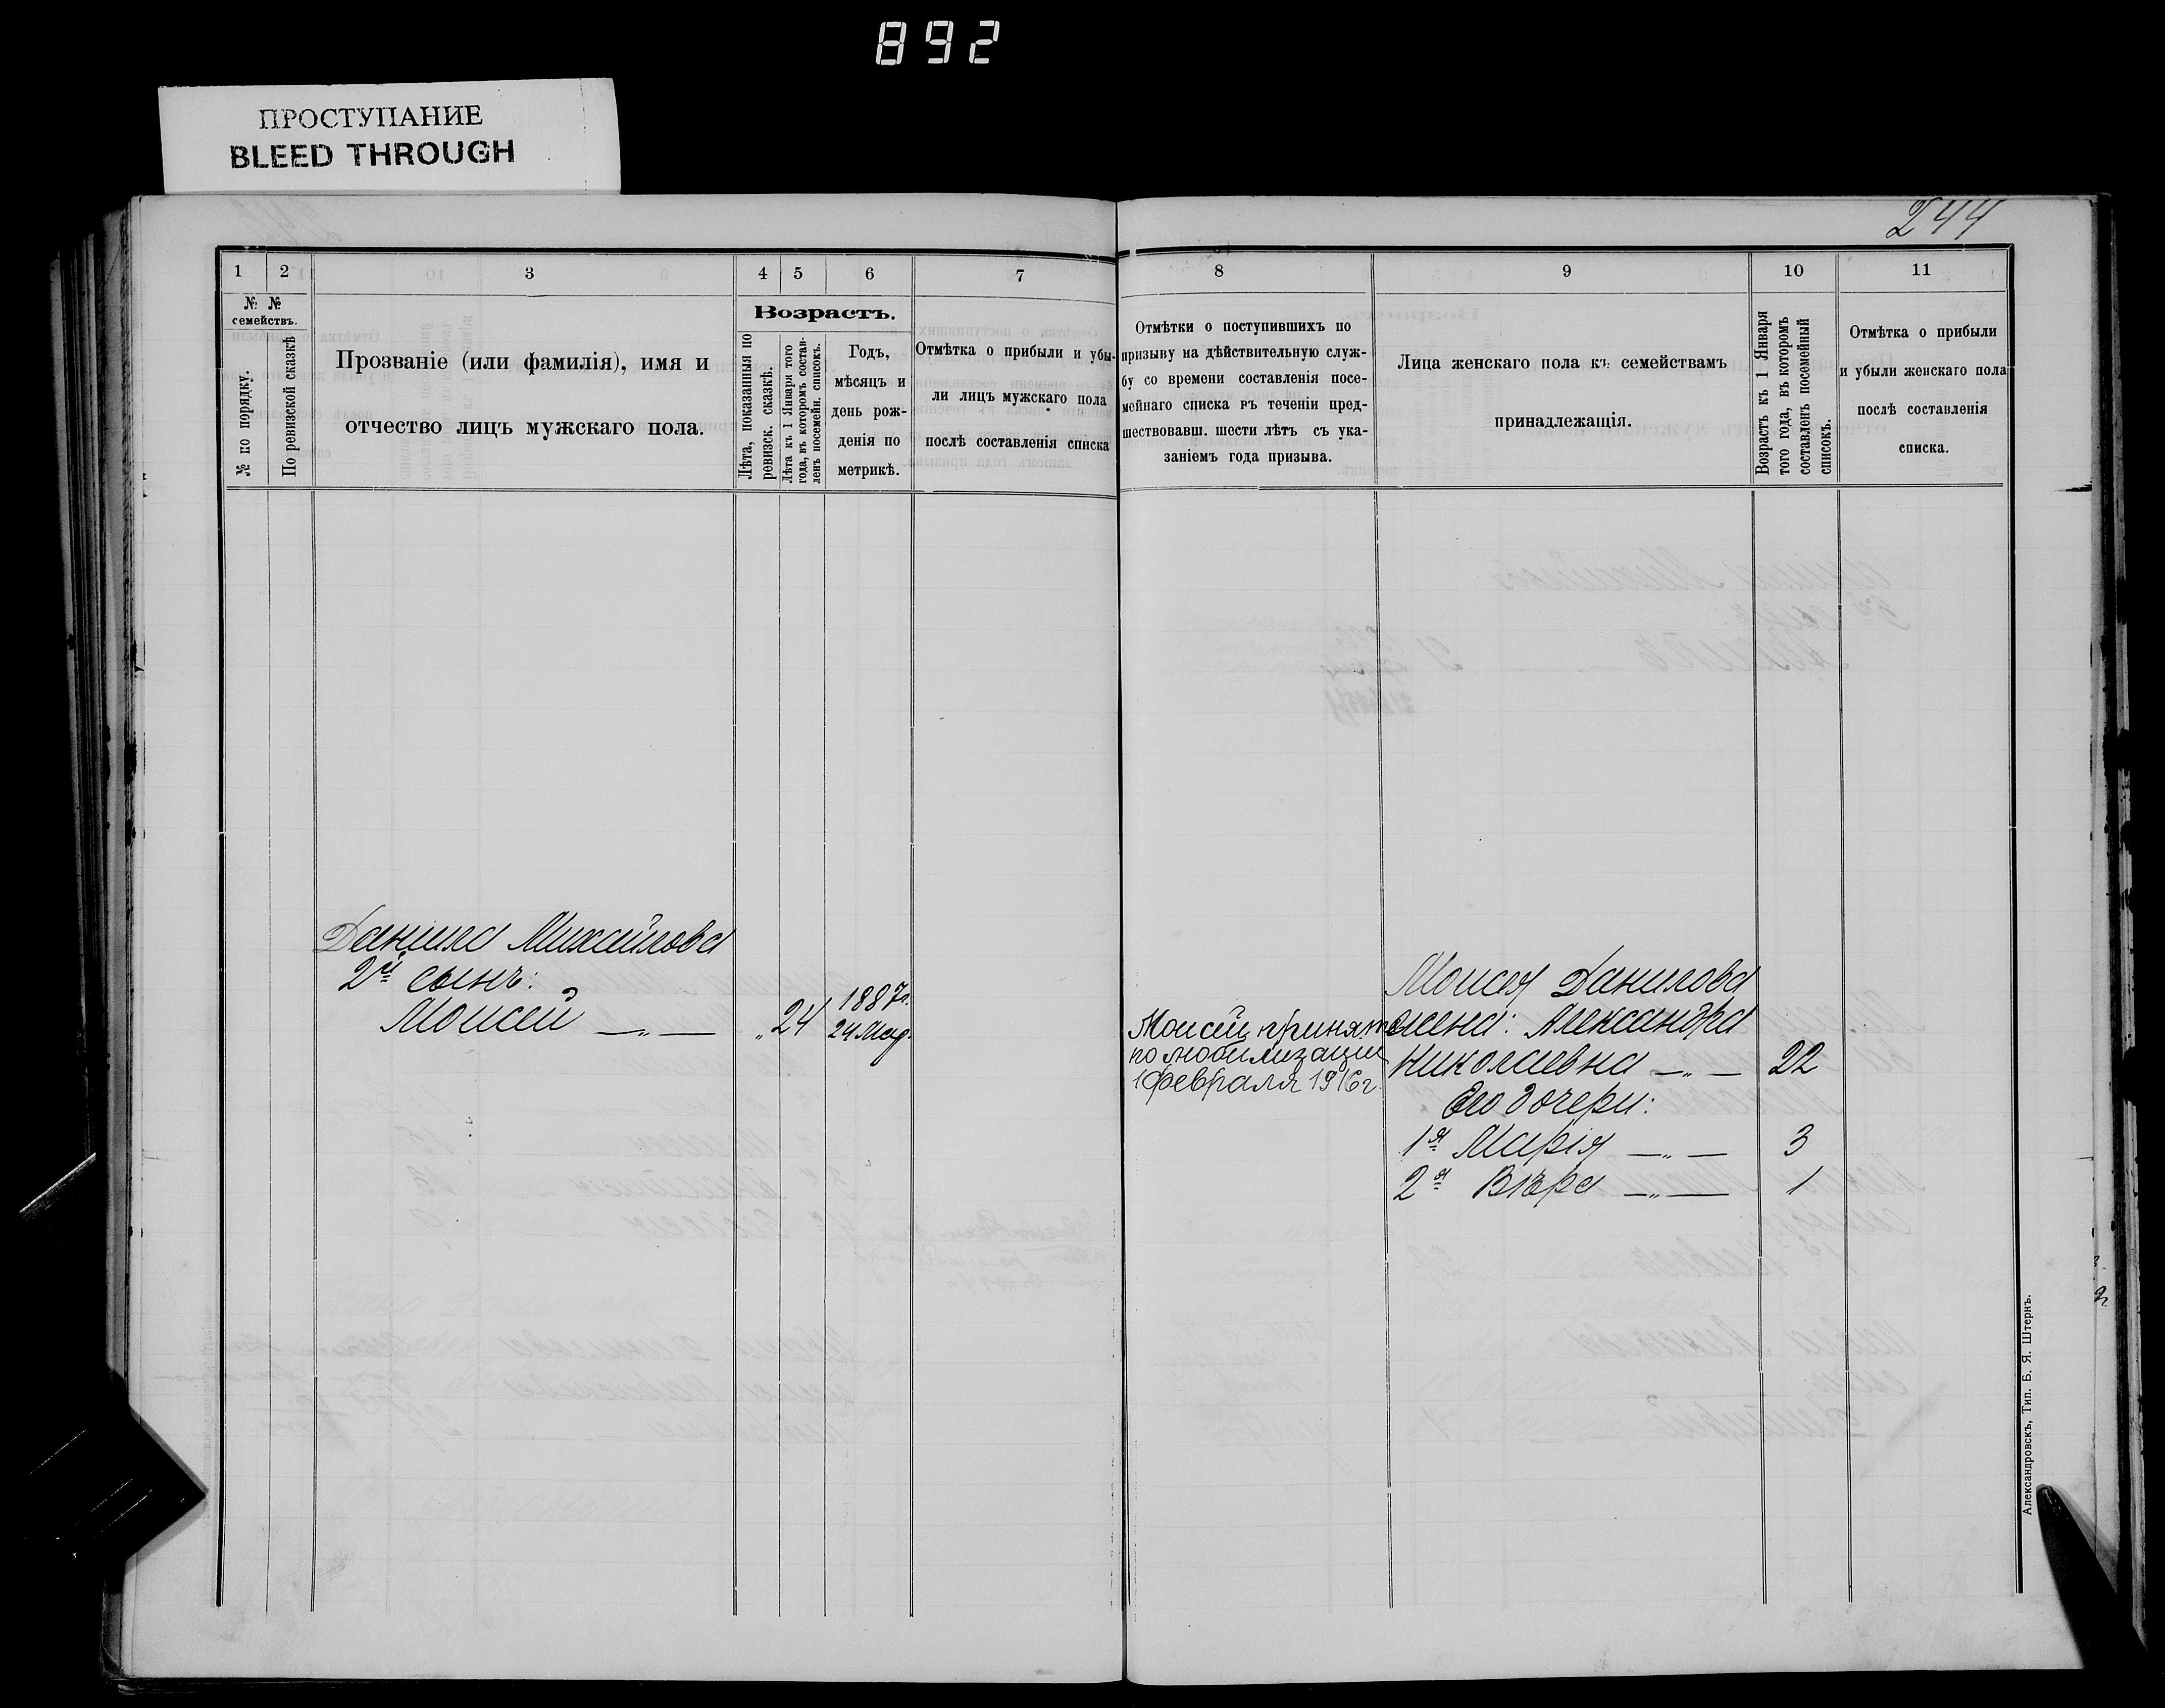 892
ПРОСТУПАНИЕ
BLEED THROUGH
244
1 2 3 4 5 6 7 8 9 10 11
№ № семействъ.
№ по порядку.
По ревизской сказкѣ
Прозваніе (или фамилія), имя и
отчество лицъ мужскаго пола.
Возрастъ.
Лѣта, показанныя по
ревизск. сказкѣ.
Лѣта къ 1 Января того
года, въ которомъ состав-
ленъ посемейн. списокъ.
Годъ,
мѣсяцъ и
день рож-
денія по
метрикѣ.
Отмѣтка о прибыли и убы-
ли лицъ мужскаго пола
послѣ составленія списка
Отмѣтки о поступившихъ по
призыву на дѣйствительную служ-
бу со времени составленія посе-
мейнаго списка въ теченіи пред-
шествовавш. шести лѣтъ съ ука-
заніемъ года призыва.
Лица женскаго пола къ семействамъ
принадлежащія.
Возрастъ къ 1 Января
того года, въ которомъ
составленъ посемейный
списокъ.
Отмѣтка о прибыли
и убыли женскаго пола
послѣ составленія
списка.
Данила Михайлова
2й сынъ:
Моисей — „ — „ 24 1887г.
24 Мая.
Моисей принятъ
по мобилизаціи
1 февраля 1916г.
Моисея Данилова
жена: Александра
Николаевна — „ — 22
Его дочери:
1я Марія — „ — 3
2я Вѣра — „ — 1
Александровскъ, Тип. Б. Я. Штернъ.